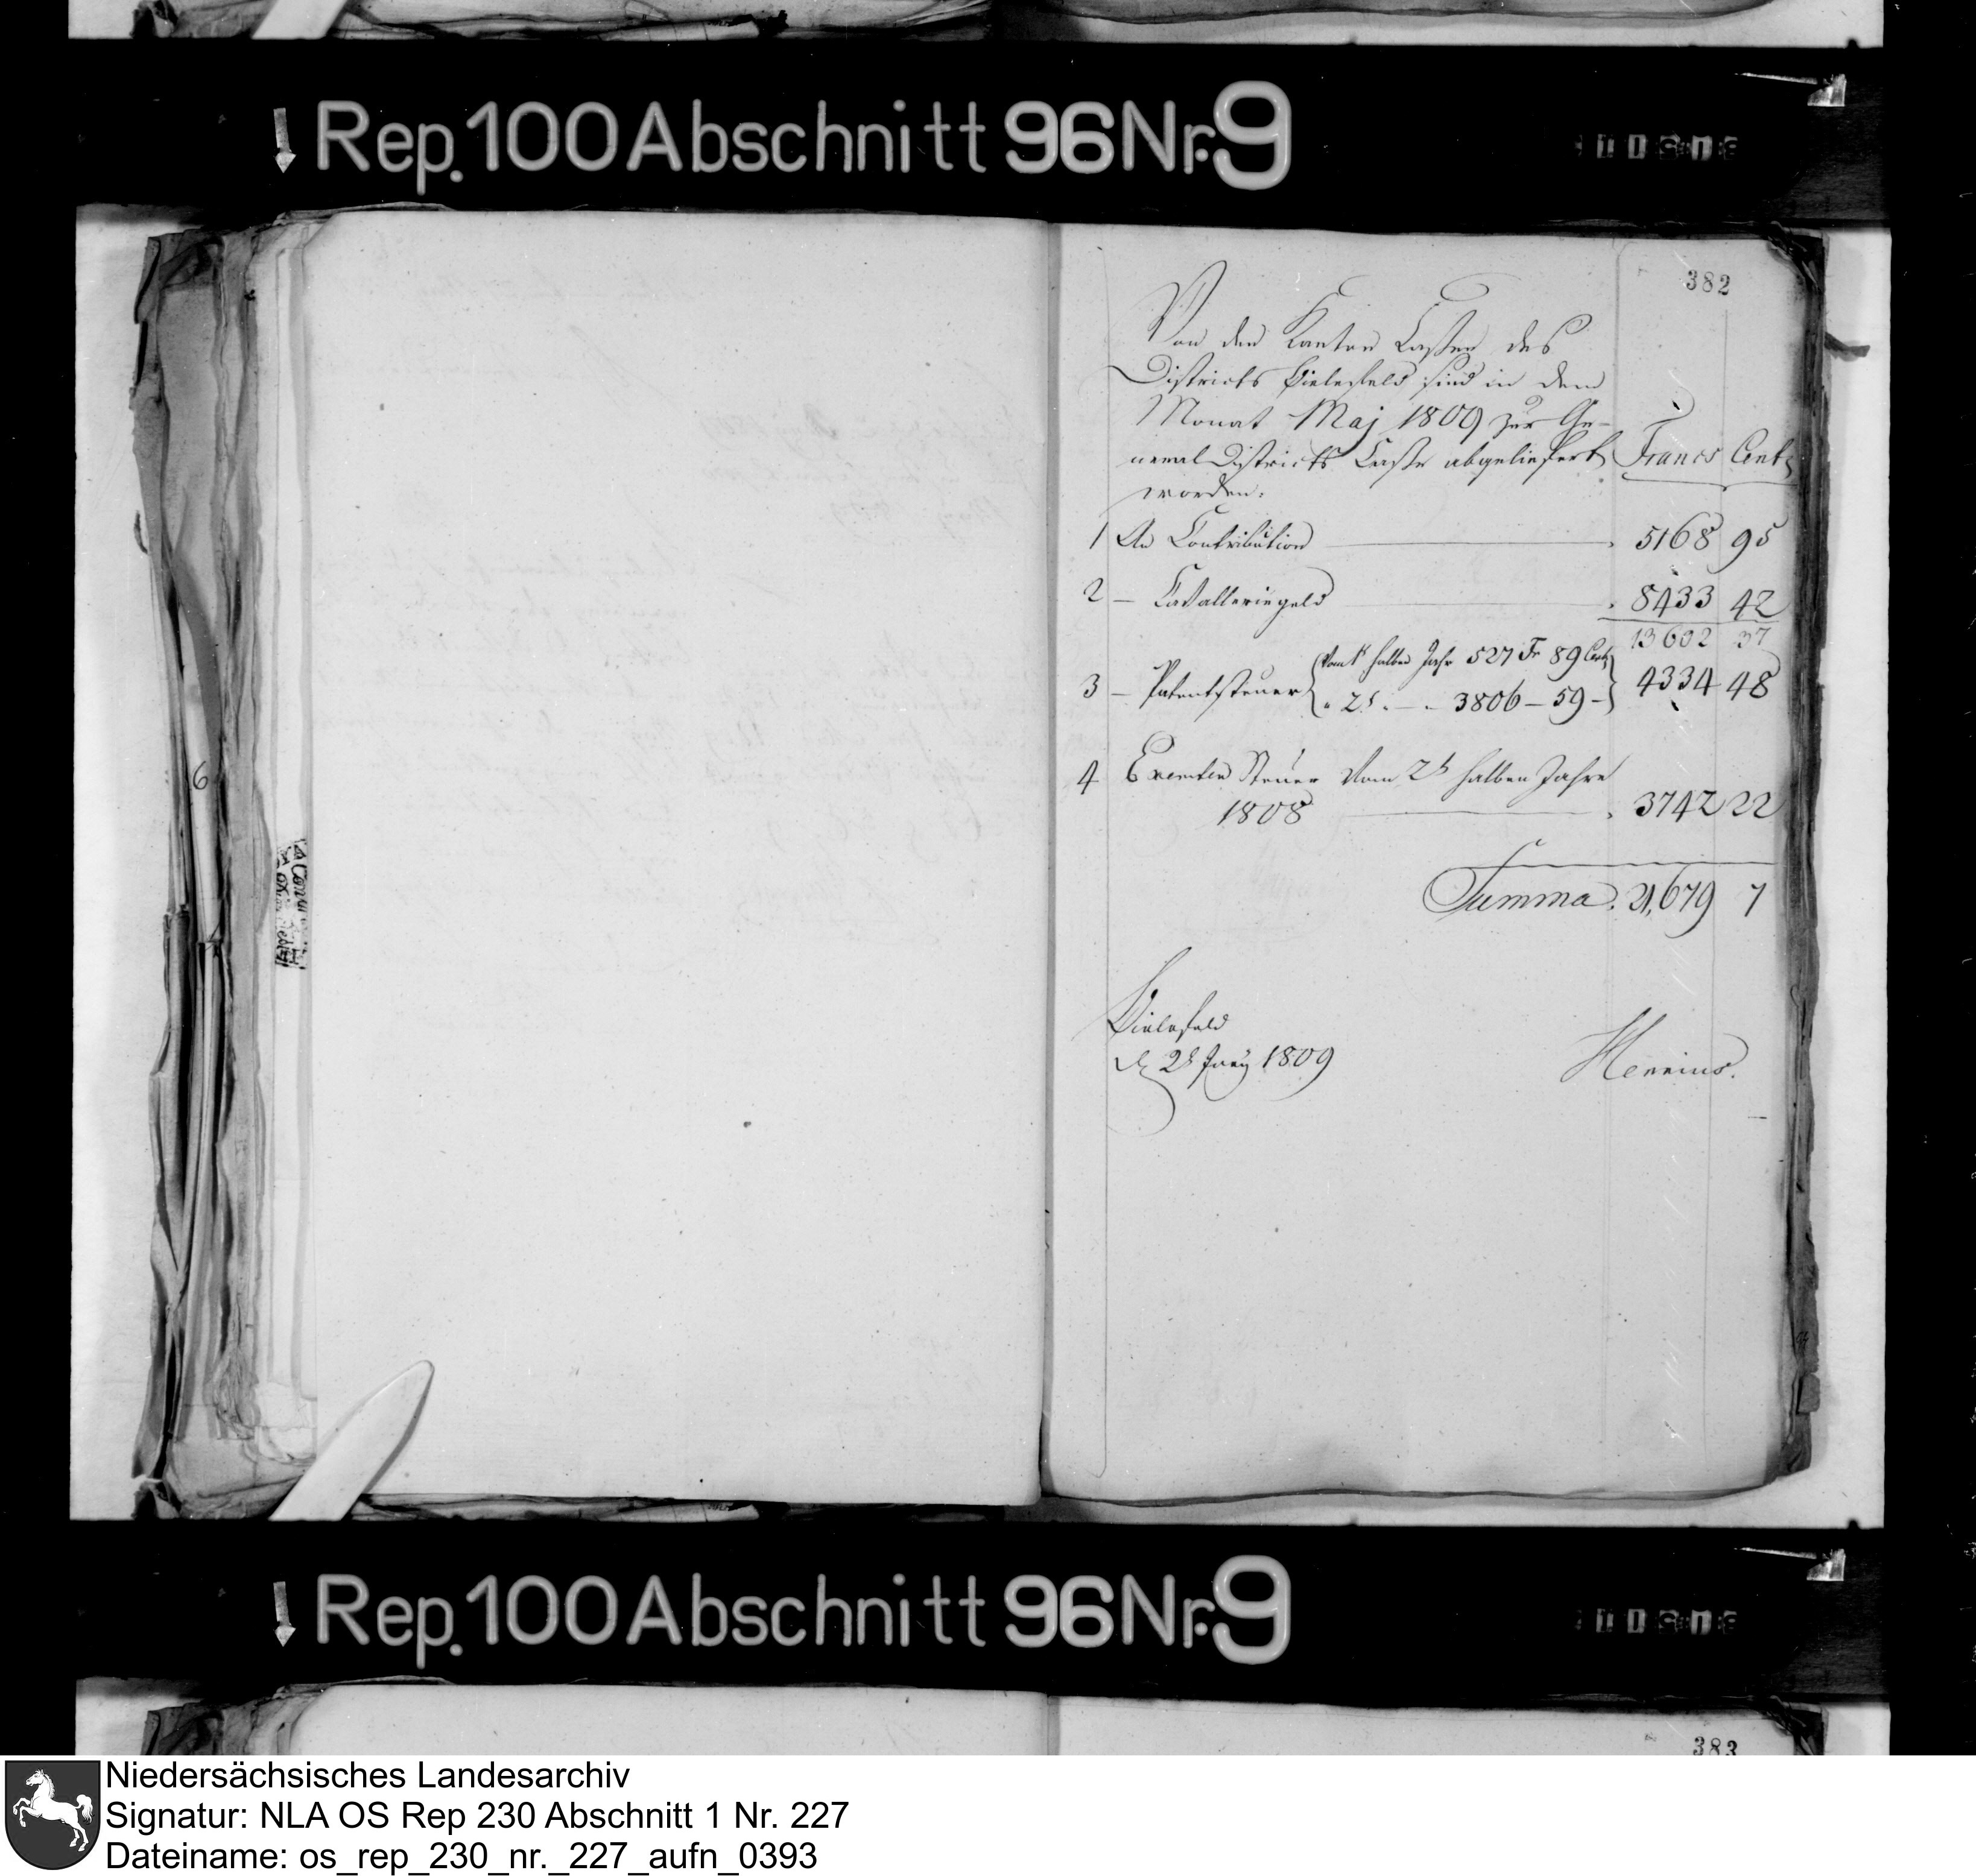 Rep. 100 Abschnitt 96 Nr. 9
382
Von den Kanton Cassen des
Districts Bielefeld sind in dem
Monat Maj 1809 zur Ge-
neral Districts Casse abgeliefert
worden:
Francs Cent
1 An Contribution 5168 95
2 — Cavalleriegeld 8433 42
13602 37
3 — Patentsteuer vom 1t halben Jahr 527 Fr 89 Cent
" 2t — 3806 — 59 —
4334 48
4 Exemten Steuer vom 2t halben Jahre
1808 3742 22
Summa. 21,679 7
Bielefeld
d 2t Juny 1809
6
Rep. 100 Abschnitt 96 Nr. 9
383
Niedersächsisches Landesarchiv
Signatur: NLA OS Rep 230 Abschnitt 1 Nr. 227
Dateiname: os_rep_230_nr._227_aufn_0393